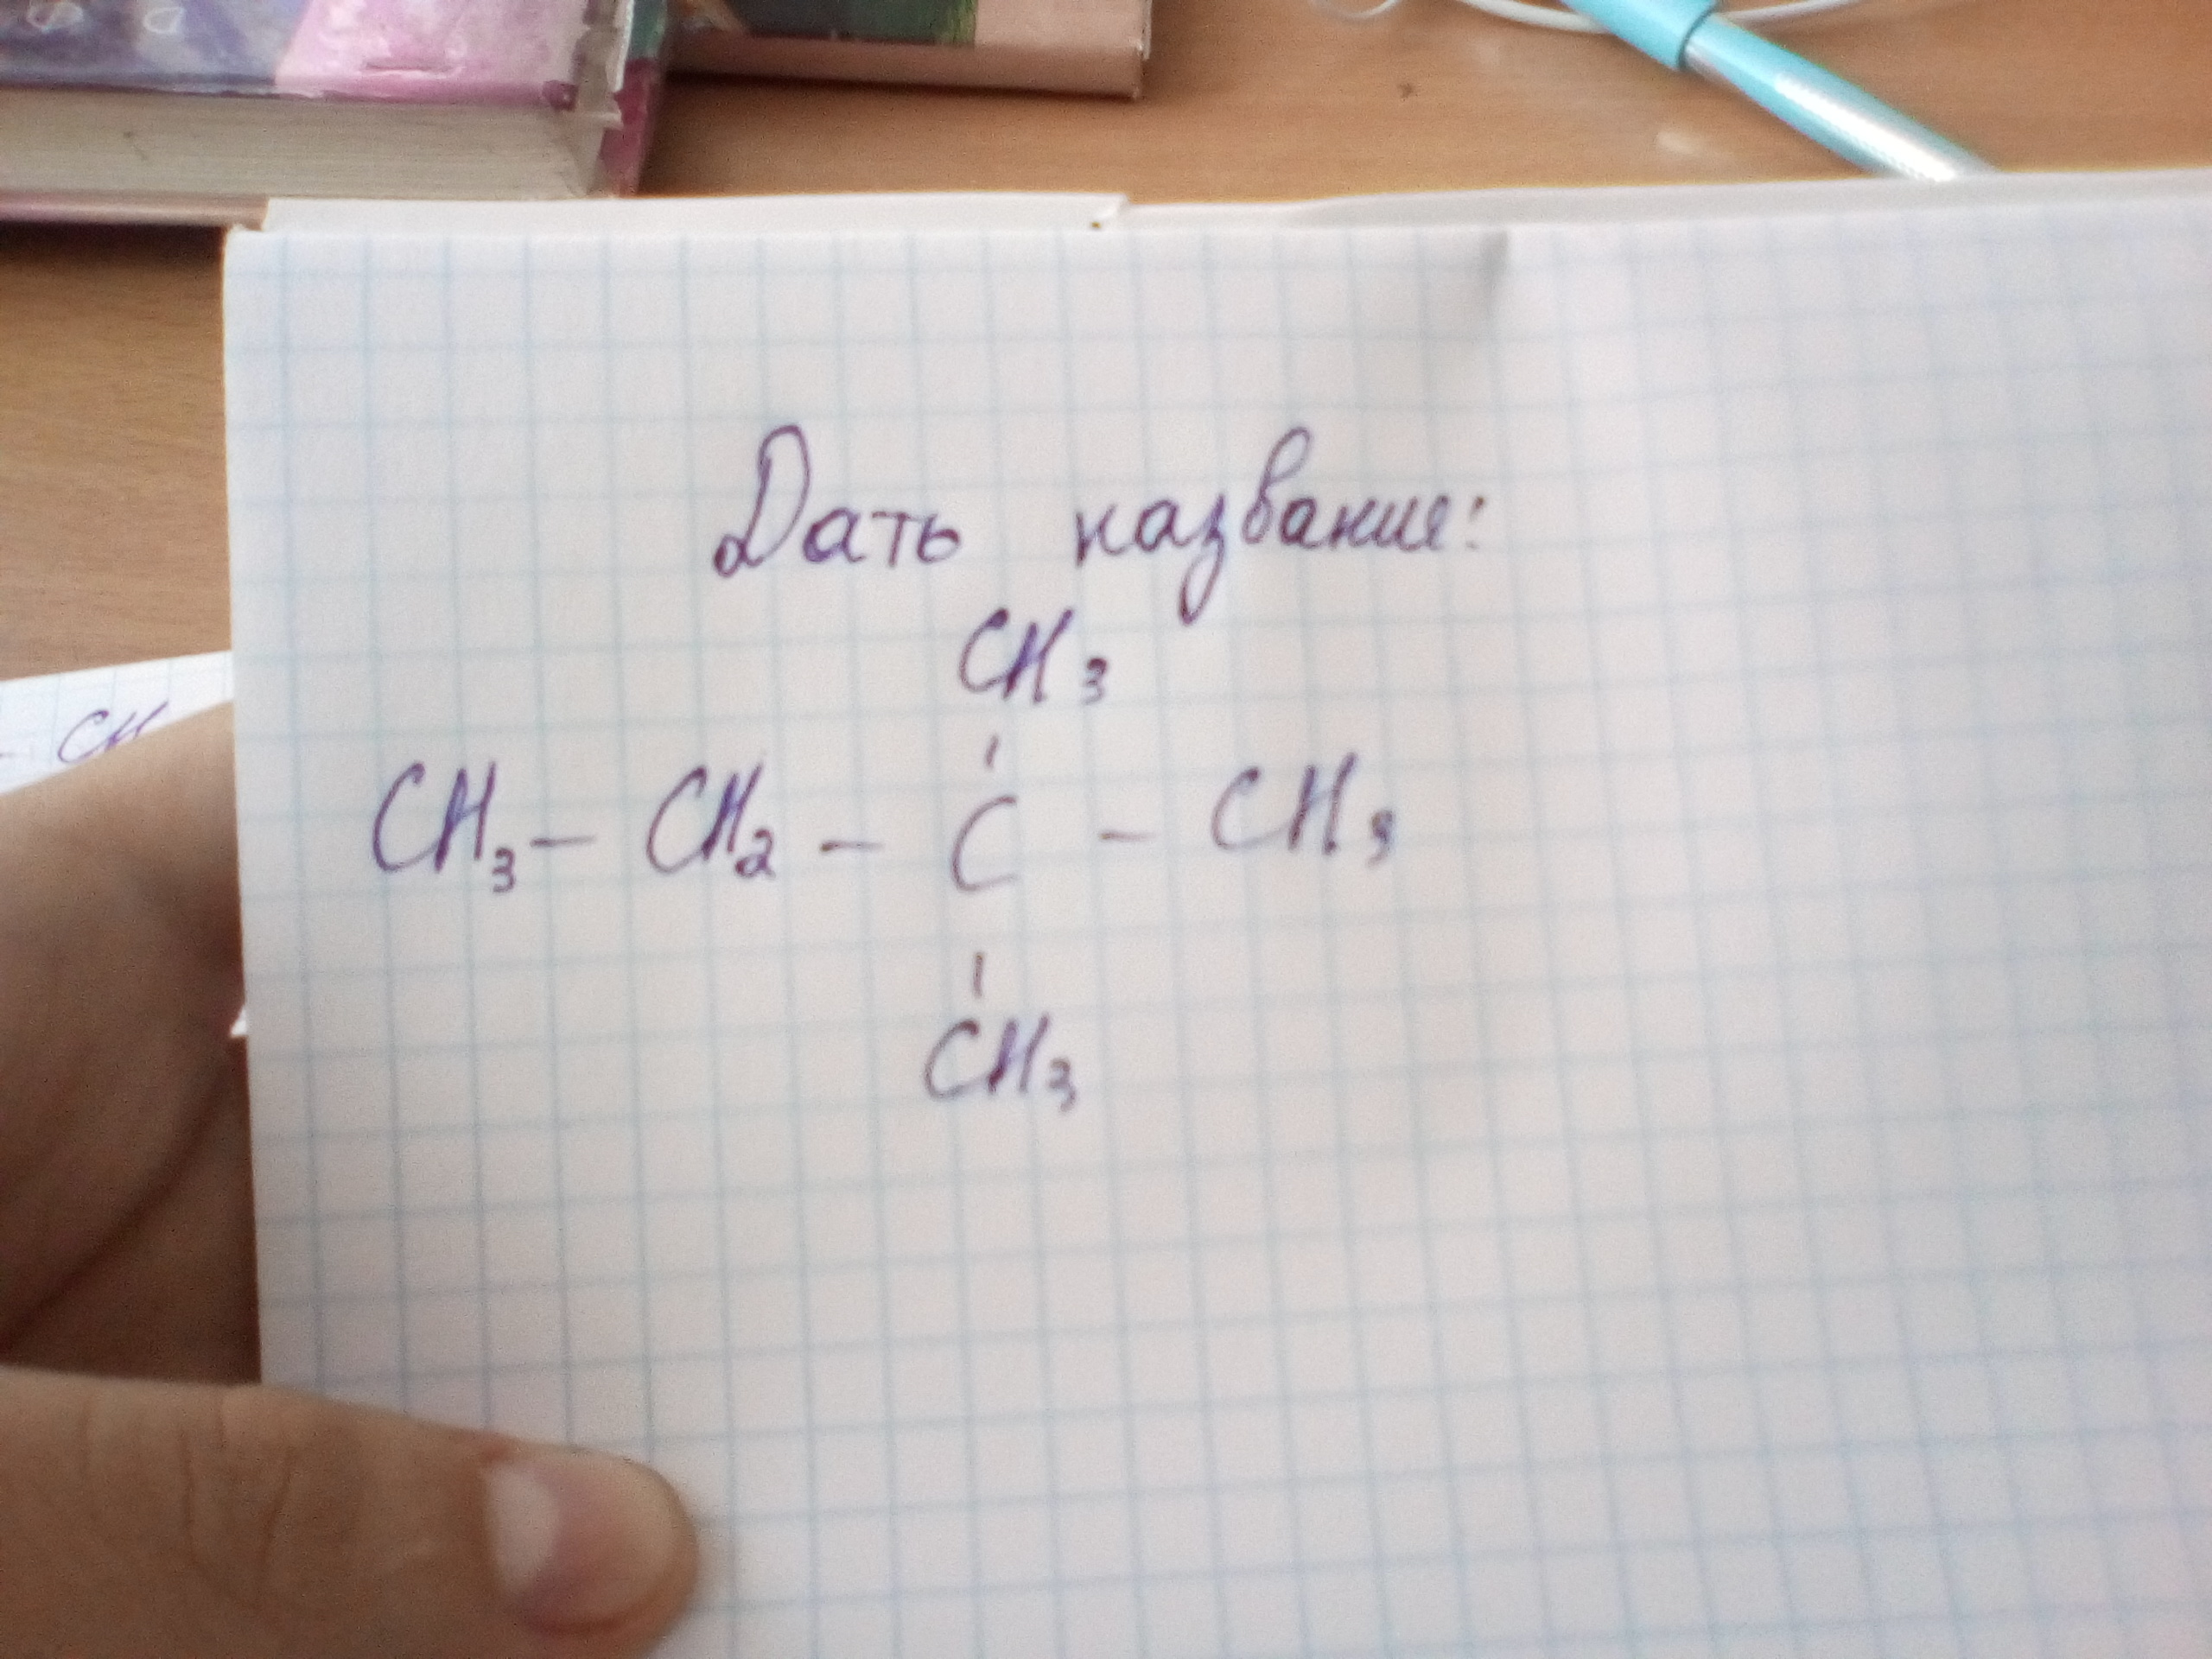 Дать название:
CH3
CH3 – CH2 – C – CH3
CH3
– CH